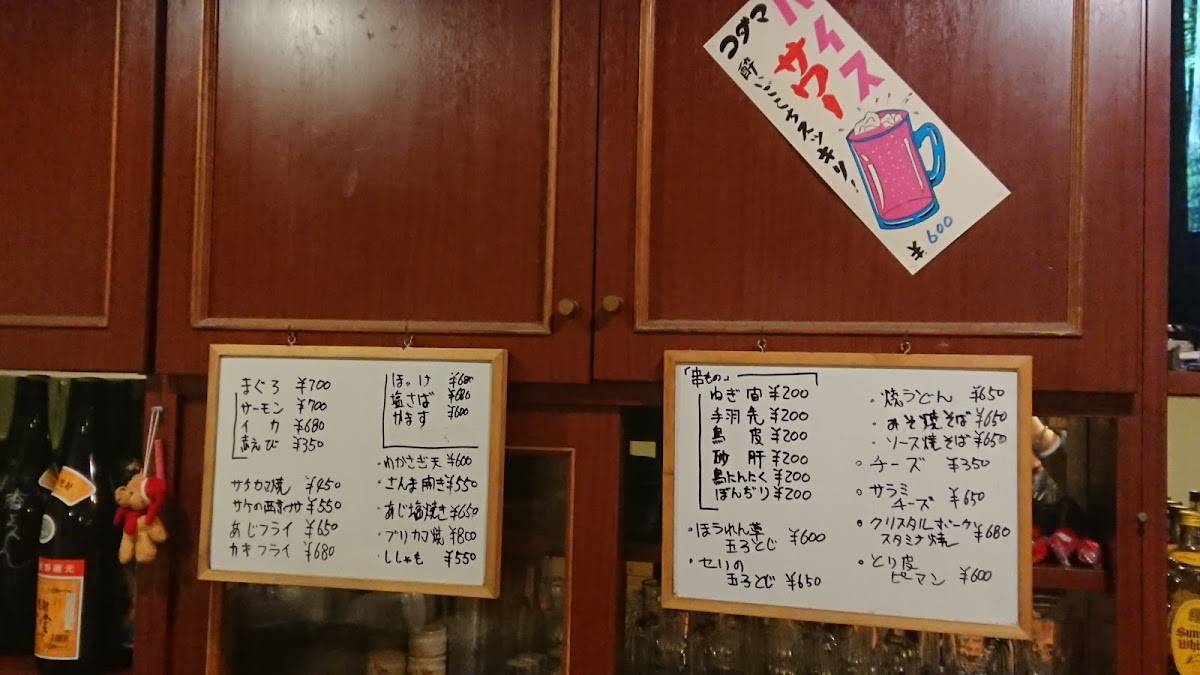 コダマ
バイス
サワー
酔いごこちスッキリ!
¥600
まぐろ ¥700
サーモン ¥700
イカ ¥680
赤えび ¥350
サケカマ焼 ¥450
サケの西京ミソ ¥550
あじフライ ¥650
カキフライ ¥680
ほっけ ¥680
塩さば ¥680
かます ¥600
・わかさぎ天 ¥600
・さんま開き ¥550
・あじ塩焼き ¥650
・ブリカマ焼 ¥800
・ししゃも ¥550
「串もの」
ねぎ間 ¥200
手羽先 ¥200
鳥皮 ¥200
砂肝 ¥200
鳥にんにく ¥200
ぼんぢり ¥200
・ほうれん草
玉子とじ ¥600
・セリの
玉子とじ ¥650
・焼うどん ¥650
・みそ焼そば ¥650
・ソース焼そば ¥650
・チーズ ¥350
・サラミ
チーズ ¥650
・クリスタルポーク
スタミナ焼 ¥680
・とり皮
ピーマン ¥600